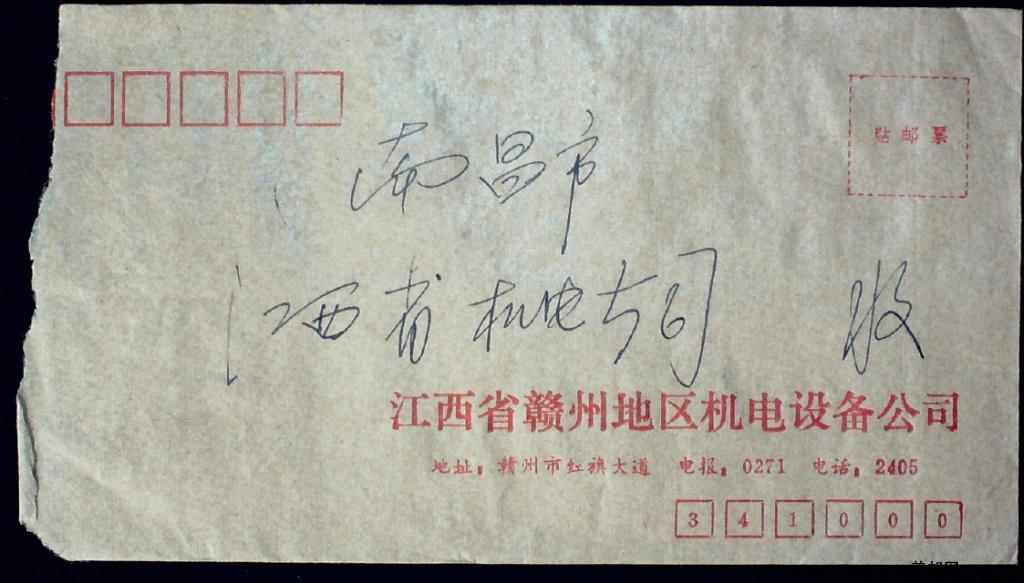 贴邮票
南昌市
江西省机电公司 收
江西省赣州地区机电设备公司
地址：赣州市红旗大道 电报：0271 电话：2405
341000